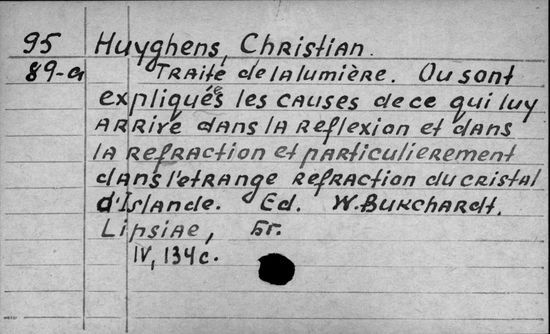 95 Huyghens, Christian.
89-a Traité de la lumière. Ou sont
expliquées les causes de ce qui luy
arrive dans la reflexion et dans
la refraction et particulierement
dans l'etrange refraction du cristal
d'Islande. Ed. W. Burchardt.
Lipsiae, Бг.
IV, 134 с.